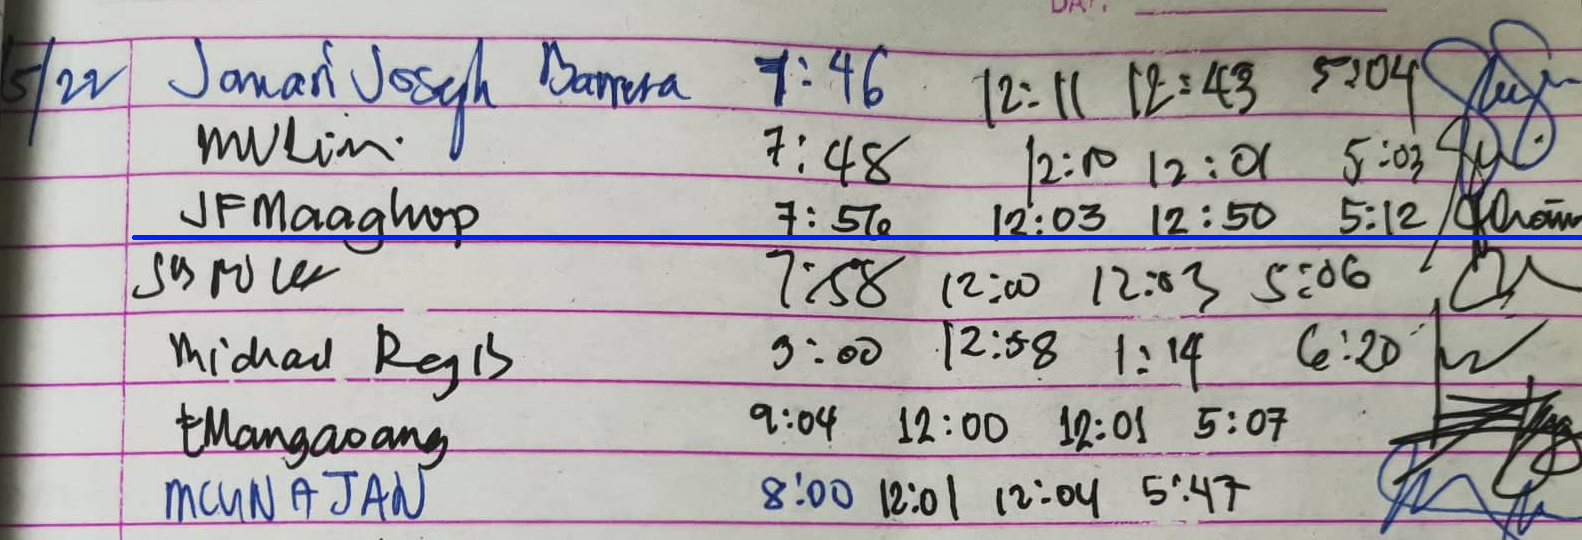 5/22 Jomari Joseph Barrera 7:46 12:11 12:43 5:04
MVLim 7:48 12:10 12:01 5:03
JFMaaghop 7:56 12:03 12:50 5:12
7:58 12:00 12:03 5:06
Michael Regis 9:00 12:58 1:14 6:20
tMangaoang 9:04 12:00 12:01 5:07
MCUNAJAN 8:00 12:01 12:04 5:47